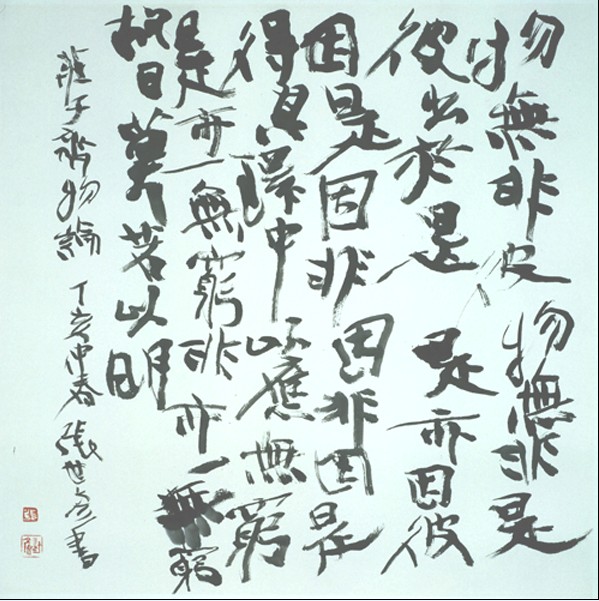 物無非彼物無非是
彼出於是是亦因彼
因是因非因非因是
得其環中以應無窮
是亦一無窮非亦一無窮
故曰莫若以明
莊子齊物論丁亥仲春張世彥書